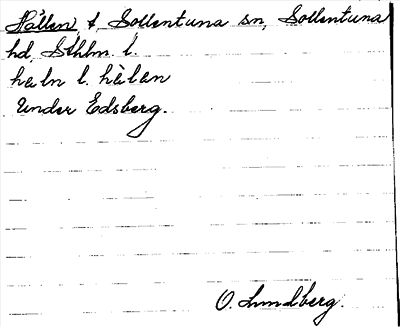 Hållen, t Sollentuna sn, Sollentuna
hd, Sthlm. l.
haln l. hàlan
Under Edsberg.
O. Lundberg.